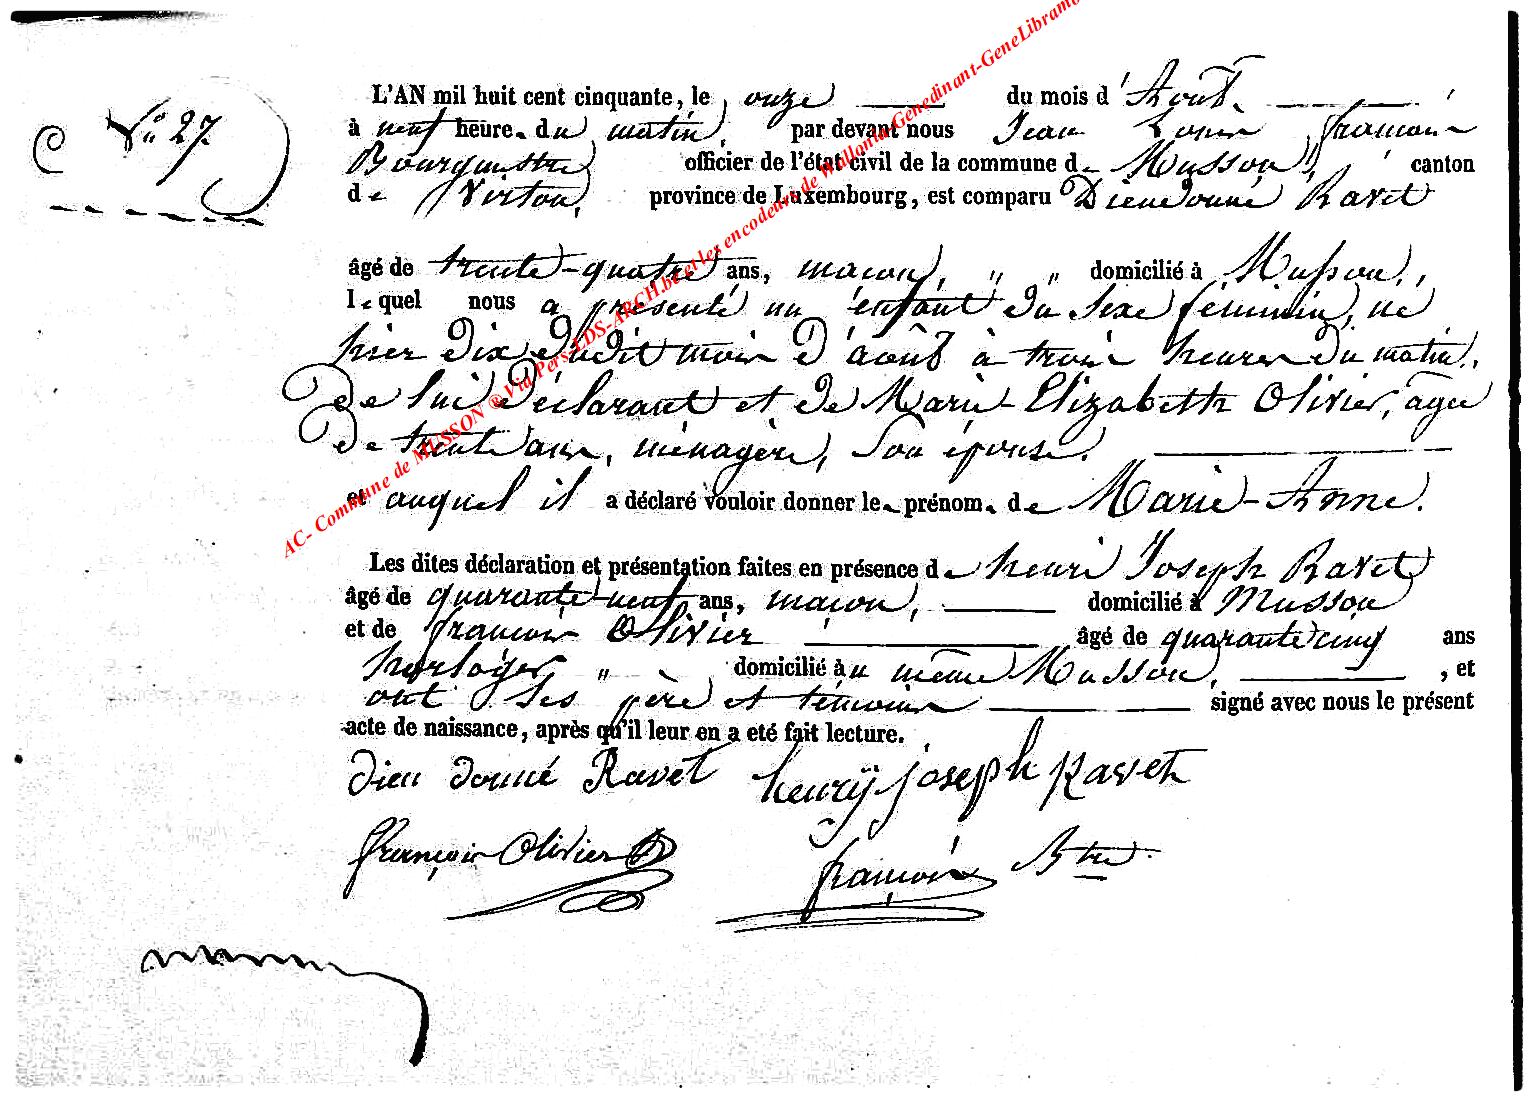 N° 27.
L'AN mil huit cent cinquante, le onze du mois d'Août.
à neuf heure. du matin, par devant nous Jean Louis françois
Bourgmestre officier de l'état civil de la commune de Musson, canton
de Virton, province de Luxembourg, est comparu Dieudonné Ravet
âgé de trente-quatre ans, maçon, " " domicilié à Musson,
lequel nous a présenté un enfant du sexe féminin, né
hier dix dudit mois d'août à trois heures du matin,
De lui déclarant et de Marie-Elizabeth Olivier, agée
De trente ans, ménagère, son épouse.
et auquel il a déclaré vouloir donner le prénom de Marie-Anne.
Les dites déclaration et présentation faites en présence de henri Joseph Ravet
âgé de quarante-neuf ans, maçon, domicilié à Musson
et de françois Olivier âgé de quarante cinq ans
horloger " domicilié au même Musson, , et
ont ses père et témoins signé avec nous le présent
acte de naissance, après qu'il leur en a eté fait lecture.
dieu donné Ravet henrÿ joseph Ravet
françois Olivier françois Btre
AC- Commune de MUSSON ® Via Pers-LDS-ARCH.be et les encodeurs de Wallonia-Genedinant-GeneLibramo